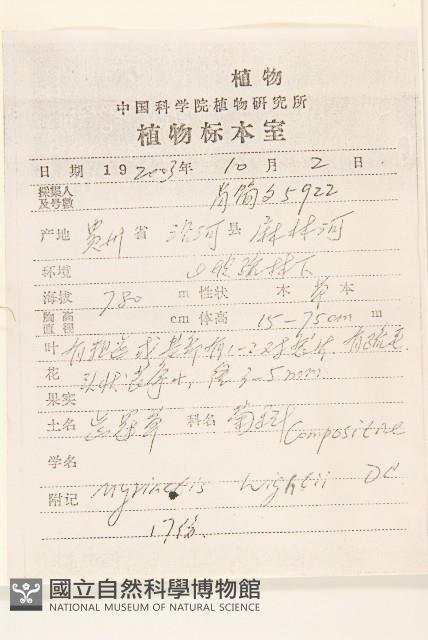 植物
中国科学院植物研究所
植物标本室
日期 19 2003年 10月 2日
採集人及号数 肖简文5922
产地 贵州省 沿河县 麻林河
环境 山坡疏林下
海拔 780 m 性状 木 草本
胸高直径 cm 体高 15-75cm m
叶 有
花 头状花序小, 径3-5mm.
果实
土名 科名 菊科 Compositae
学名
附记 Myriactis Wightii DC
17份
國立自然科學博物館
NATIONAL MUSEUM OF NATURAL SCIENCE